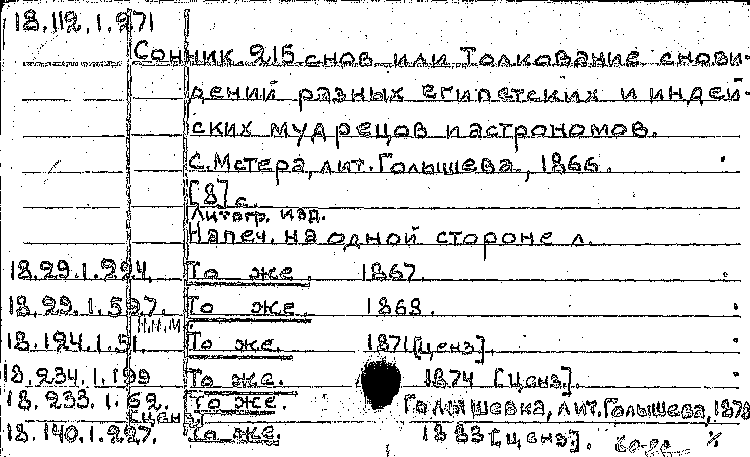 18.112.1.271
Сонник 215 снов или Толкование снови-
дений разных египетских и индей-
ских мудрецов и астрономов.
С. Мстера, лит. Голышева, 1866.
[8] с.
Литогр. изд.
Напеч. на одной стороне л.
18.29.1.224. То же. 1867.
18.29.1.597. То же. 1868.
18.124.1.51. То же. 1871 [ценз].
18.234.1.199 То же. 1874 [ценз].
18.233.1.62. То же. Голышевка, лит. Голышева, 1878
[ценз]
18.140.1.227. То же. 1883 [ценз].